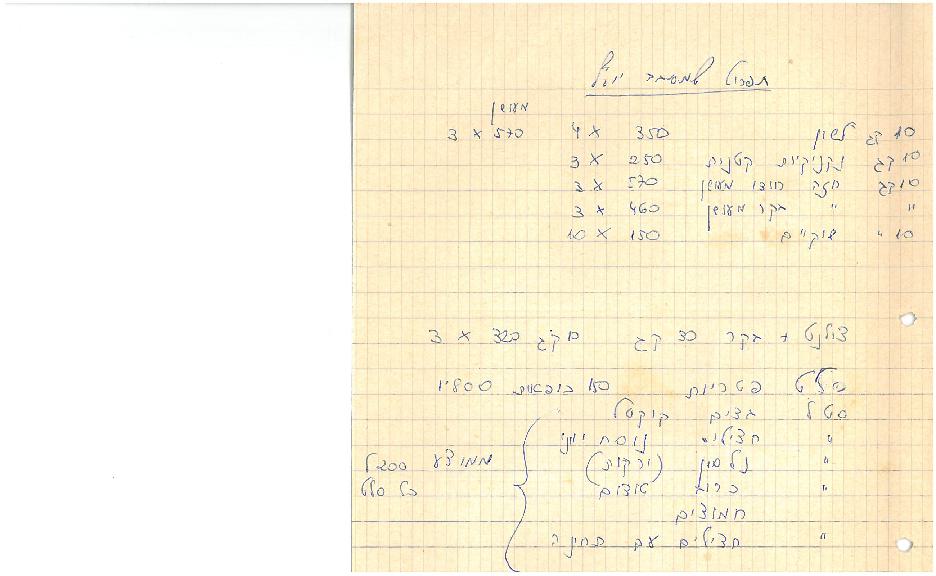 תפריט למסיבת יובל
מעושן
10 קג לשון 350 × 4 570 × 3
10 קג נקניקיות קטנות 250 × 3
10 קג חזה הודו מעושן 570 × 3
" " בקר מעושן 460 × 3
10 " שוקיים 150 × 10
צולנט + בקר 30 קג 320 × 3
סלט פטריות 150 קופסאות
סלט ביצים קוקטל
" חצילים נוסח יווני
" נלסון (ירקות)
" כרוב
חמוצים
" חצילים עם תחינה
ממוצע 200
כל סלט